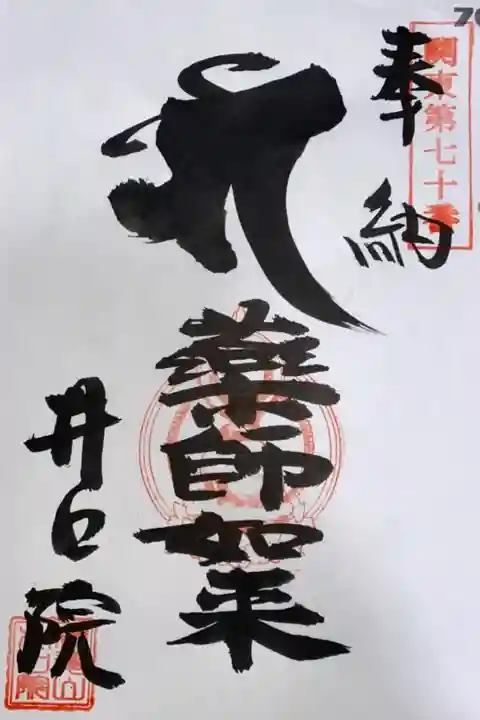 70
奉納
関東第七十番
薬師如来
井口院